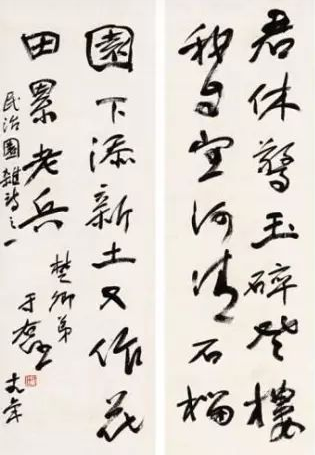 君休驚玉碎登樓
我自望河清石榴
園下添新土又作花
田累老兵
民治園雜詩之一
楚卿弟
于右任